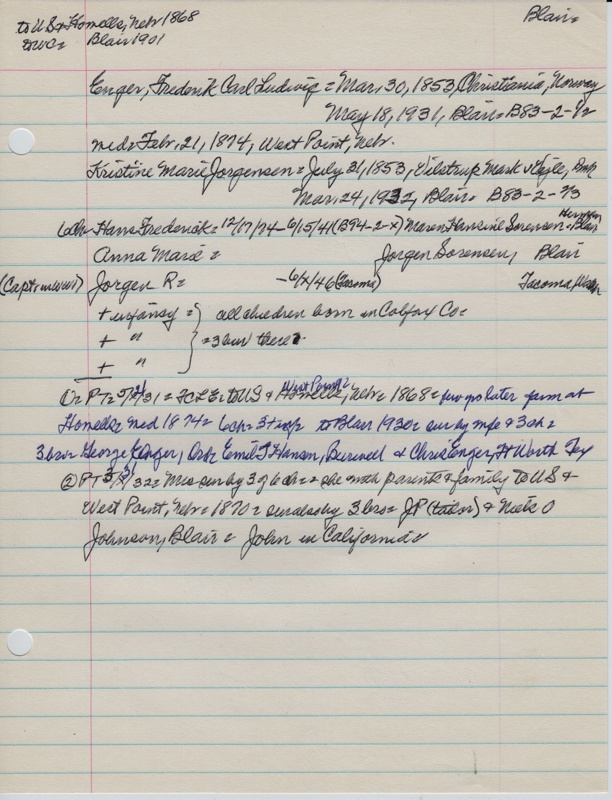 to US & Howells, Nebr 1868
to WC = Blair 1901
Blair =
Enger, Frederik Carl Ludwig = Mar. 30, 1853, Christiania, Norway
May 18, 1931, Blair = B83-2-1/2
md = Febr. 21, 1874, West Point, Nebr.
Kristine Marie Jorgensen = July 31, 1853, Vilstrup Mark v Vejle, Dmk
Mar. 24, 1932, Blair = B83-2-2/3
6 ch = Hans Frederick = 12/17/74-6/15/41 (B94-2-x) Maren Hansine Sorenson = Blair
Anna Marie = Jorgen Sorensen, Blair
(Capt in WWI) Jorgen R = -6/x/46 (Tacoma) Tacoma, Wash
+ infancy = } all children born in Colfax Co =
+ " } = 3 bur there
+ " }
① = PT = 5/21/31 = FCLE = to US & West Point = Howells, Nebr = 1868 = few yrs later farm at
Howells = md 1874 = 6 ch = 3 + inf = to Blair 1930 = sur by wife & 3 ch =
3 bros = George K Enger, Orb = Emil T Hansen, Burwell & Chris Enger, Ft Worth Tex
② PT 3/31/32 = Mrs sur by 3 of 6 ch = she with parents & family to US &
West Point, Nebr = 1870 = sur also by 3 bros = JP (tailor) & Niels O
Johnson, Blair = John in California =